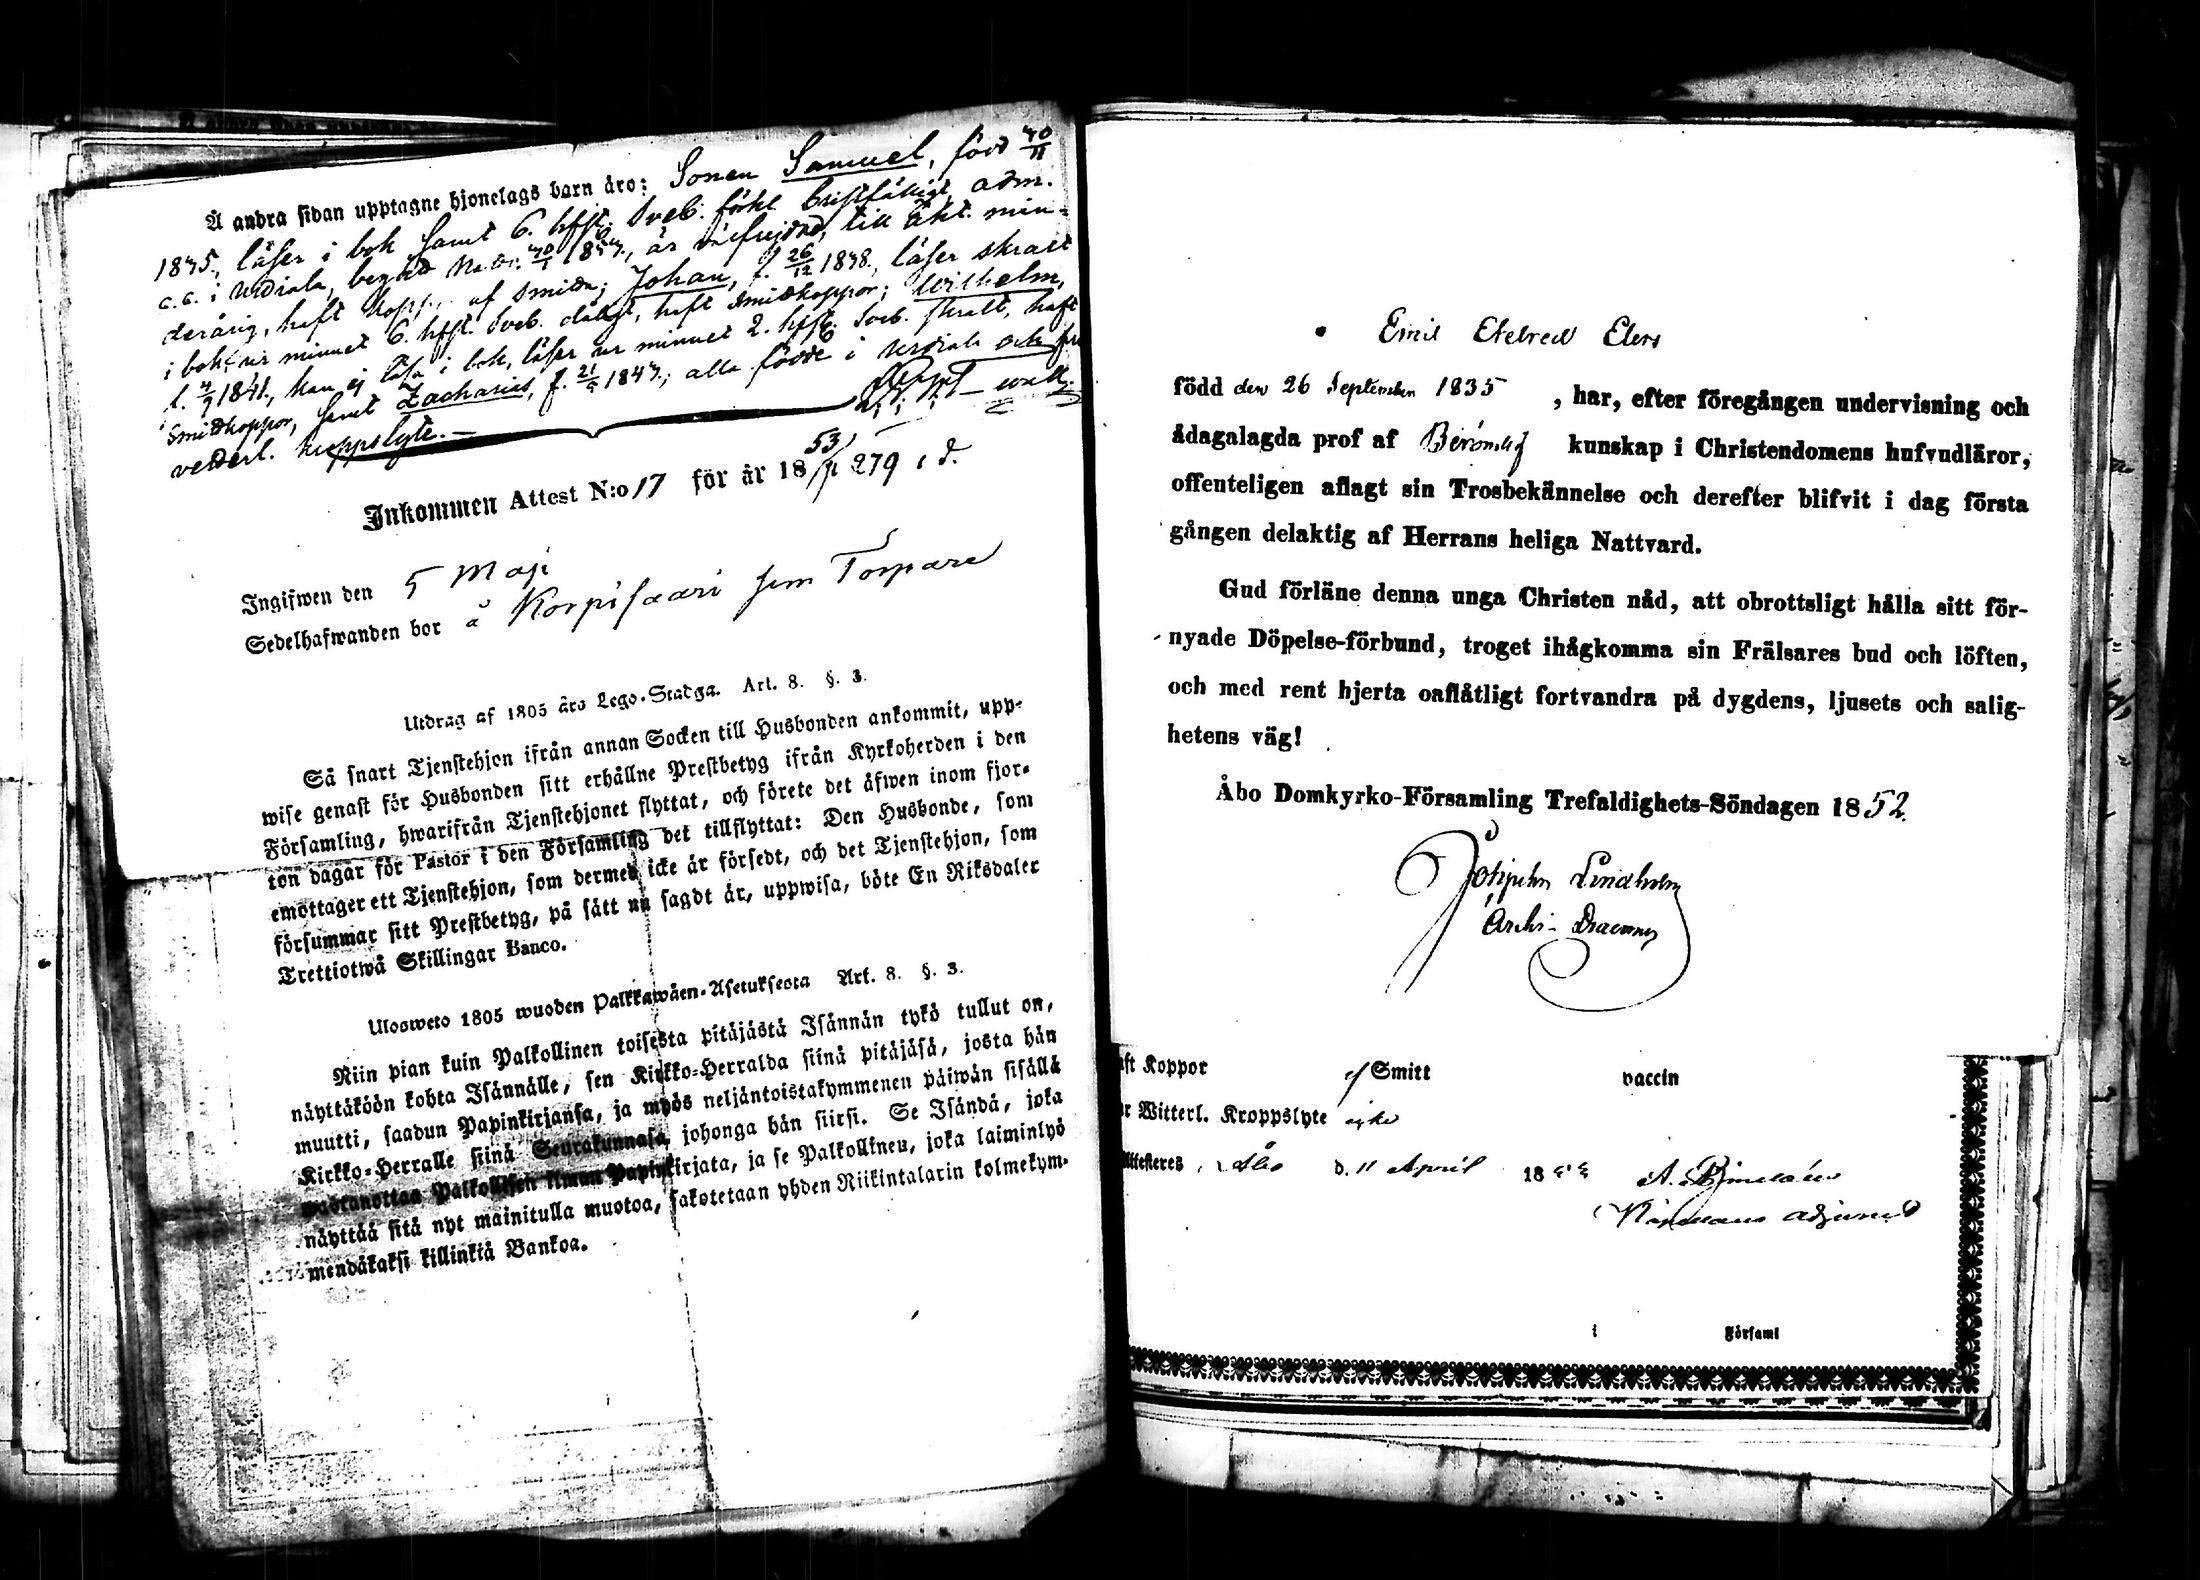 Å andra sidan upptagne hjonelags barn äro: Sonen Samuel, född
1835, läser i bok samt 6. hfst. Sveb. förkl. bristfälligt, adm.
c. a. i Urdiala, begick Nattv. är välfrejdad, till äkt. min-
derårig, haft kopp. af smitta; Johan, f. 26/12 1838, läser skralt
i bok, ur minnet 6. hfst. Sveb. dåligt, haft smittkoppor; Wilhelm,
f. 1841, kan ej läsa i bok, läser ur minnet 2. hfst. Sveb. skralt, haft
smittkoppor, samt Zacharias, f. 1843; alla födde i Urdiala och
vederl. kroppslyte. —
Inkommen Attest N:o 17 för år 1853 p 279
Ingifwen den 5 Maji
Sedelhafwanden bor å Korpisaari som Torpare
Utdrag af 1805 års Lego-Stadga. Art. 8. §. 3.
Så snart Tjenstehjon ifrån annan Socken till Husbonden ankommit, upp-
wise genast för Husbonden sitt erhållne Prestbetyg ifrån Kyrkoherden i den
Församling, hwarifrån Tjenstehjonet flyttat, och förete det äfwen inom fjor-
ton dagar för Pastor i den Församling det tillflyttat: Den Husbonde, som
emottager ett Tjenstehjon, som dermed icke är försedt, och det Tjenstehjon, som
försummar sitt Prestbetyg, på sätt nu sagdt är, uppwisa, böte En Riksdaler
Trettiotwå Skillingar Banco.
Ulosweto 1805 wuoden Palkkawäen-Asetuksesta Art. 8. §. 3.
Niin pian kuin Palkollinen toisesta pitäjästä Isännän tykö tullut on,
näyttäköön kohta Isännälle, sen Kirkko-Herralda siinä pitäjäsä, josta hän
muutti, saadun Papinkirjansa, ja myös neljäntoistakymmenen päiwän sisällä
Kirkko-Herralle siinä Seurakunnasa, johonga hän siirsi. Se Isändä, joka
wastanottaa Palkollisen ilman Papinkirjata, ja se Palkollinen, joka laiminlyö
näyttää sitä nyt mainitulla muotoa, sakotetaan yhden Riikintalarin kolmekym-
mendäkaksi killinkiä Bankoa.
Emil Etelred Elers
född den 26 September 1835 , har, efter föregången undervisning och
ådagalagda prof af Berömlig kunskap i Christendomens hufvudläror,
offenteligen aflagt sin Trosbekännelse och derefter blifvit i dag första
gången delaktig af Herrans heliga Nattvard.
Gud förläne denna unga Christen nåd, att obrottsligt hålla sitt för-
nyade Döpelse-förbund, troget ihågkomma sin Frälsares bud och löften,
och med rent hjerta oaflåtligt fortvandra på dygdens, ljusets och salig-
hetens väg!
Åbo Domkyrko-Församling Trefaldighets-Söndagen 1852.
Lindholm
Archi-
aft Koppor af Smitt vaccin
ar Witterl. Kroppslyte icke
Attesteres, i Åbo d. 11 April 18
A.
Adjunct
i Församl